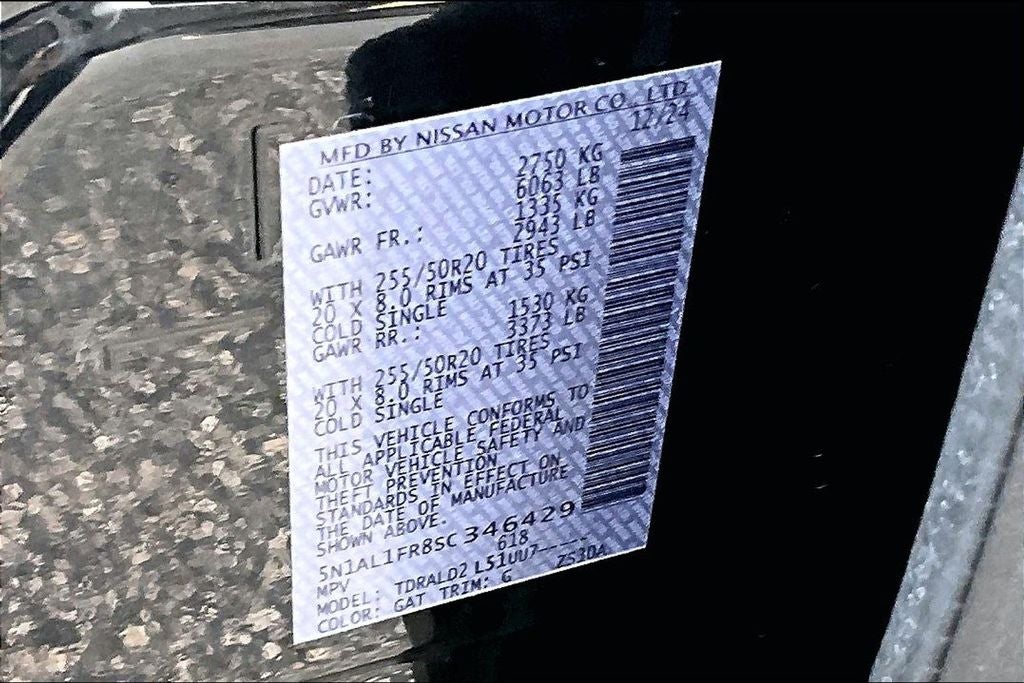 MFD BY NISSAN MOTOR CO., LTD.
DATE: 12/24
GVWR: 2750 KG
6063 LB
GAWR FR.: 1335 KG
2943 LB
WITH 255/50R20 TIRES
20 X 8.0 RIMS AT 35 PSI
COLD SINGLE
GAWR RR.: 1530 KG
3373 LB
WITH 255/50R20 TIRES
20 X 8.0 RIMS AT 35 PSI
COLD SINGLE
THIS VEHICLE CONFORMS TO
ALL APPLICABLE FEDERAL
MOTOR VEHICLE SAFETY AND
THEFT PREVENTION
STANDARDS IN EFFECT ON
THE DATE OF MANUFACTURE
SHOWN ABOVE.
5N1AL1FR8SC346429
MPV 618
MODEL: TDRALD2 L51UU7-----
COLOR: GAT TRIM: G ZS30A